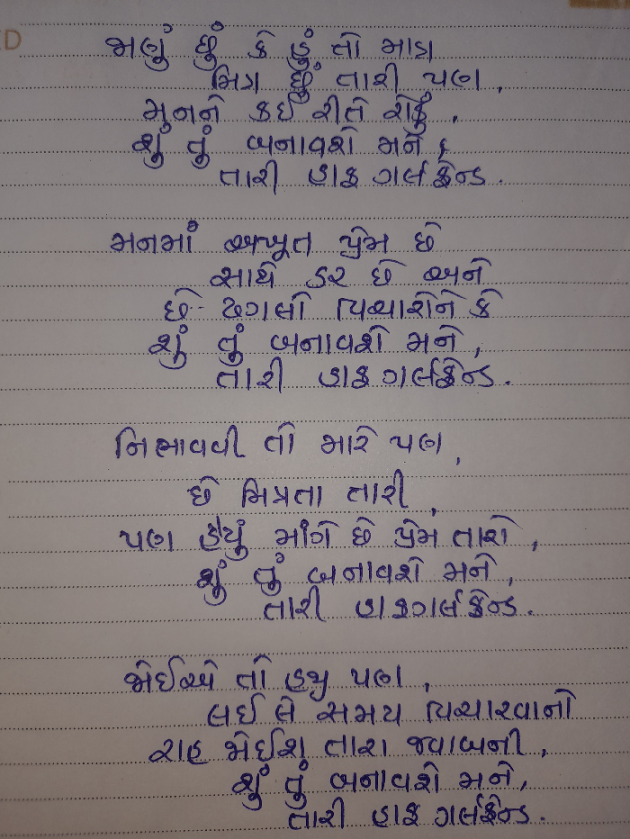 જાણું છું કે હું તો માત્ર
મિત્ર છું તારી પણ,
મનને કઈ રીતે રોકું,
શું તું બનાવશે મને,
તારી હાફ ગર્લફ્રેન્ડ.
મનમાં અખૂત પ્રેમ છે
સાથે ડર છે અને
છે ઢગલો વિચારોને કે
શું તું બનાવશે મને,
તારી હાફ ગર્લફ્રેન્ડ.
નિભાવવી તો મારે પણ,
છે મિત્રતા તારી,
પણ હૈયું માંગે છે પ્રેમ તારો,
શું તું બનાવશે મને,
તારી હાફગર્લફ્રેન્ડ.
જોઈએ તો હજુ પણ,
લઈ લે સમય વિચારવાનો
રાહ જોઈશ તારા જવાબની,
શું તું બનાવશે મને,
તારી હાફ ગર્લફ્રેન્ડ.